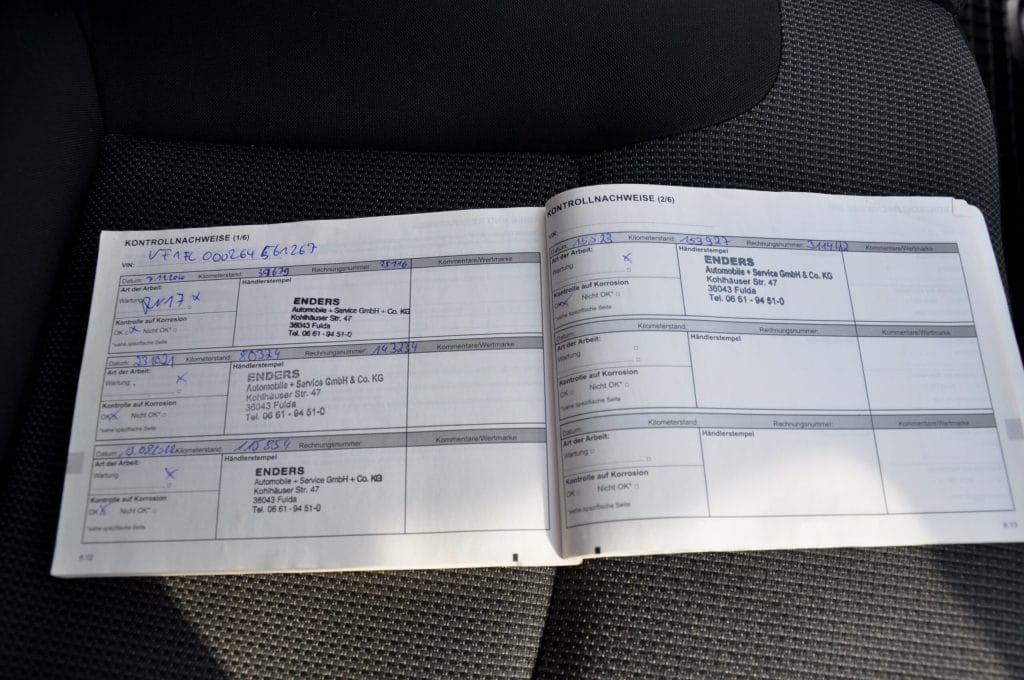 KONTROLLNACHWEISE (1/6)
VIN: VF17L 000264561267
Datum: 7.11.2020 Kilometerstand: 39679 Rechnungsnummer: Kommentare/Wertmarke
Art der Arbeit: Händlerstempel
Wartung x
Kontrolle auf Korrosion
OK x Nicht OK* □
*siehe spezifische Seite
ENDERS
Automobile + Service GmbH + Co. KG
Kohlhäuser Str. 47
36043 Fulda
Tel. 06 61 - 94 51-0
Datum: Kilometerstand: 80324 Rechnungsnummer: 143234 Kommentare/Wertmarke
Art der Arbeit: Händlerstempel
Wartung x
Kontrolle auf Korrosion
OK x Nicht OK* □
*siehe spezifische Seite
ENDERS
Automobile + Service GmbH & Co. KG
Kohlhäuser Str. 47
36043 Fulda
Tel. 06 61 - 94 51-0
Datum: Kilometerstand: 115854 Rechnungsnummer: Kommentare/Wertmarke
Art der Arbeit: Händlerstempel
Wartung x
Kontrolle auf Korrosion
OK x Nicht OK* □
*siehe spezifische Seite
ENDERS
Automobile + Service GmbH + Co. KG
Kohlhäuser Str. 47
36043 Fulda
Tel. 06 61 - 94 51-0
6.12
KONTROLLNACHWEISE (2/6)
VIN:
Datum: 15.5.23 Kilometerstand: 153927 Rechnungsnummer: 311442 Kommentare/Wertmarke
Art der Arbeit: Händlerstempel
Wartung x
Kontrolle auf Korrosion
OK x Nicht OK* □
*siehe spezifische Seite
ENDERS
Automobile + Service GmbH & Co. KG
Kohlhäuser Str. 47
36043 Fulda
Tel. 06 61 - 94 51-0
Datum: Kilometerstand: Rechnungsnummer: Kommentare/Wertmarke
Art der Arbeit: Händlerstempel
Wartung □
Kontrolle auf Korrosion
OK □ Nicht OK* □
*siehe spezifische Seite
Datum: Kilometerstand: Rechnungsnummer: Kommentare/Wertmarke
Art der Arbeit: Händlerstempel
Wartung □
Kontrolle auf Korrosion
OK □ Nicht OK* □
*siehe spezifische Seite
6.13